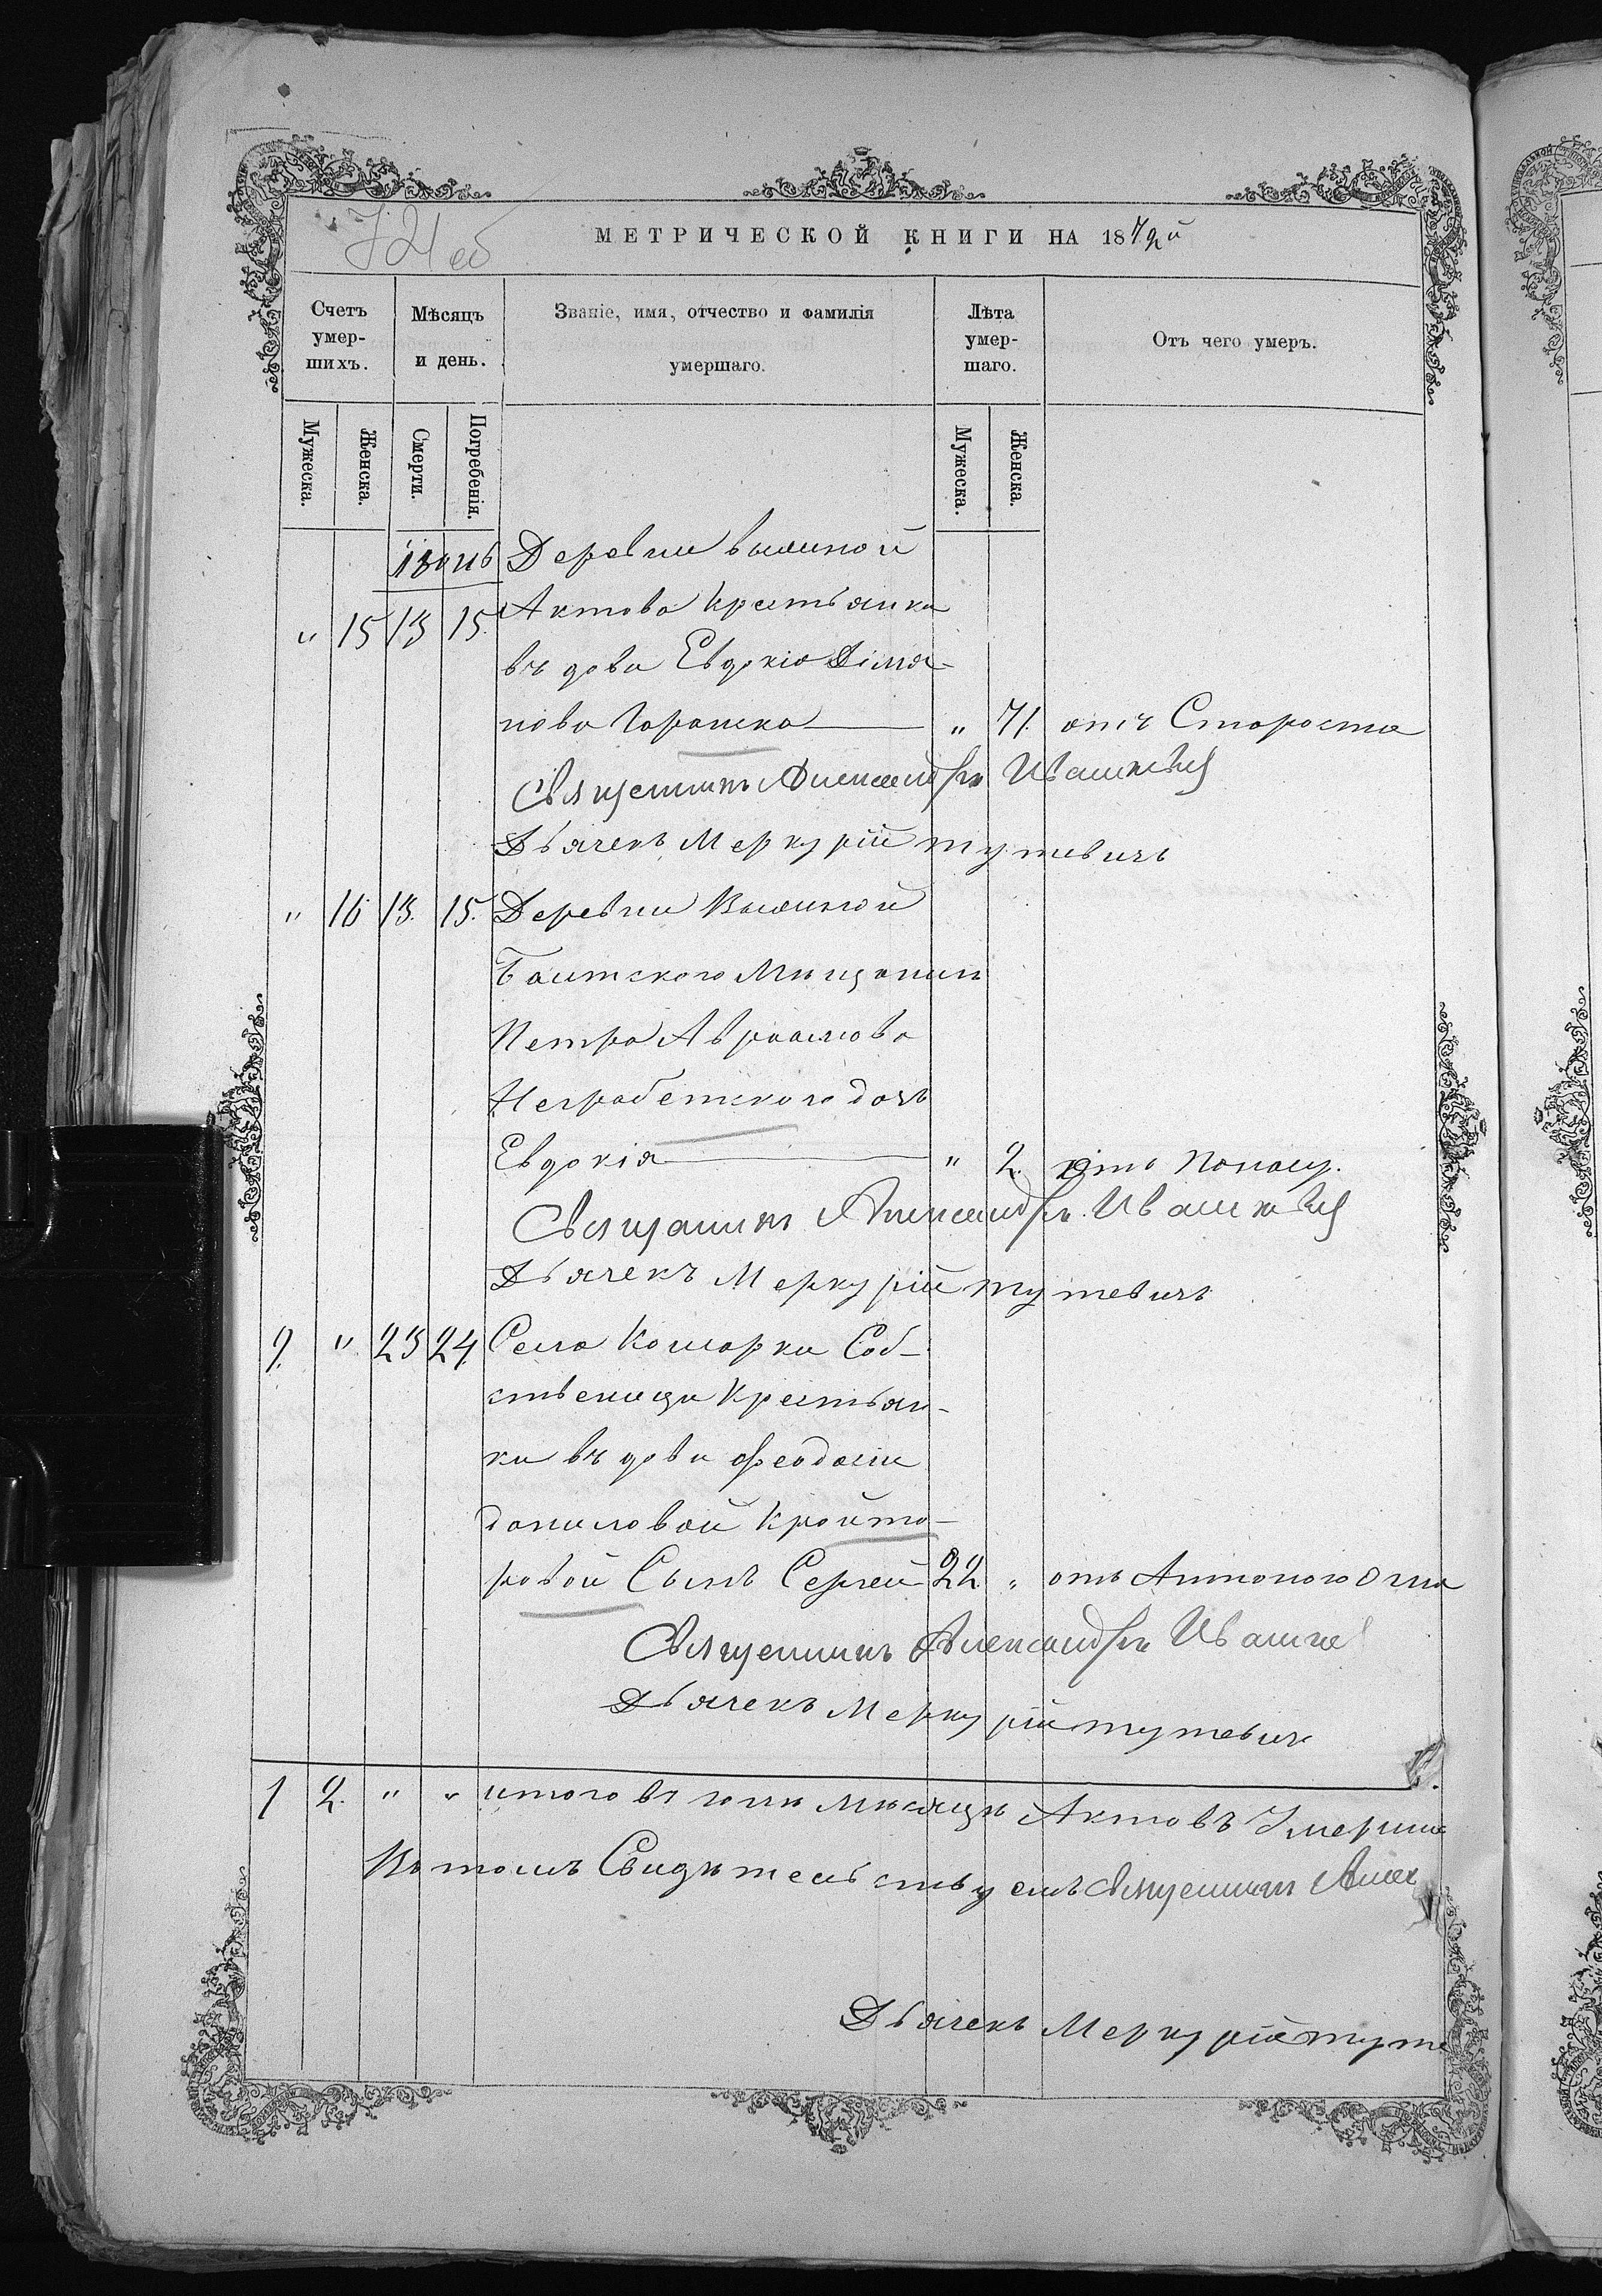 721 об
МЕТРИЧЕСКОЙ КНИГИ НА 1872й
Счетъ умер-шихъ.
Мѣсяцъ и день.
Званіе, имя, отчество и фамилія умершаго.
Лѣта умер-шаго.
Отъ чего умеръ.
Мужеска.
Женска.
Смерти.
Погребенія.
Мужеска.
Женска.
Деревни
Актова Крестьянка
" 15 13 15.
въдова Евдокія Дімя-
нова " 71. отъ Староста
Священникъ Александръ Ивашкевич
Дьячекъ Меркурій Тутевичъ
" 16 13. 15. Деревни
Балтского Мищанина
Петра Авраамова
Неграбетского дочь
Евдокія " 2. Поносу.
Священникъ Александръ Ивашкевич
Дьячекъ Меркурій Тутевичъ
9. " 23 24. Села Комарки Соб-
ственици Крестьян-
ки въдови Феодосіи
Даниловой Кройто-
ровой Сынъ Сергей 22 " отъ Антонового Огня
Священникъ Александръ Ивашке
Дьячекъ Меркурій Тутевичъ
1 2. " " итого въ мисяци Актовъ Умерши
Въ томъ Свидѣтельствуемъ Священникъ Алек
Дьячекъ Меркурій Туте